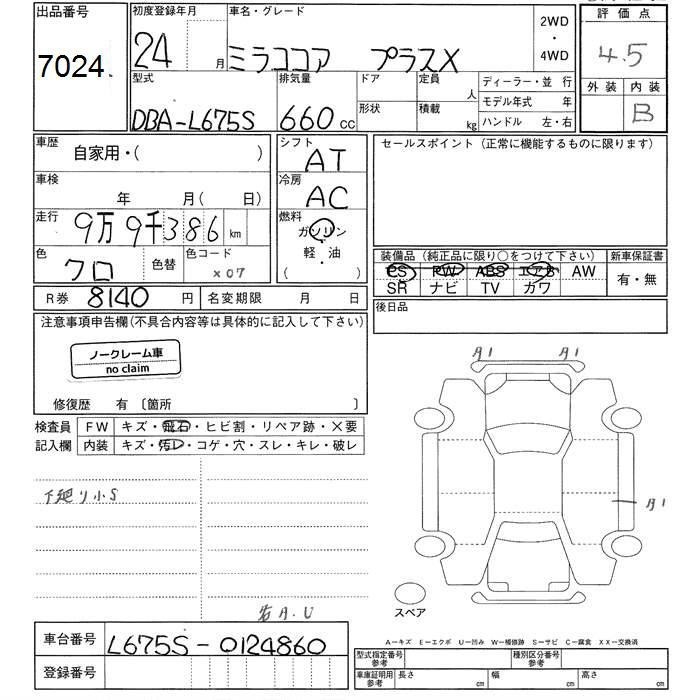 出品番号
7024
初度登録年月
24 月
車名・グレード
ミラココア プラスX
2WD
・
4WD
評価点
4.5
外装 内装
B
型式
DBA-L675S
排気量
660 CC
ドア
形状
定員
人
積載
kg
ディーラー・並 行
モデル年式 年
ハンドル 左・右
車歴
自家用・( )
車検
年 月( 日)
走行
9万9千386 km
色
クロ
色替
色コード
X07
シフト
AT
冷房
AC
燃料
ガソリン
軽・油
( )
セールスポイント(正常に機能するものに限ります)
装備品(純正品に限り○をつけて下さい)
PS PW ABS エアB AW
SR ナビ TV カワ
新車保証書
有・無
R券 8140 円
名変期限 月 日
後日品
注意事項申告欄(不具合内容等は具体的に記入して下さい)
ノークレーム車
no claim
修復歴 有 〔箇所 〕
検査員
記入欄
FW キズ・飛石・ヒビ割・リペア跡・X要
内装 キズ・汚レ・コゲ・穴・スレ・キレ・破レ
下廻り小S
A1 A1
A1
スペア
A-キズ E-エクボ U-凹み W-補修跡 S-サビ C-腐食 XX-交換済
車台番号 L675S-0124860
登録番号
型式指定番号
参考
種別区分番号
参考
車庫証明用
参考
長さ cm
幅 cm
高さ cm